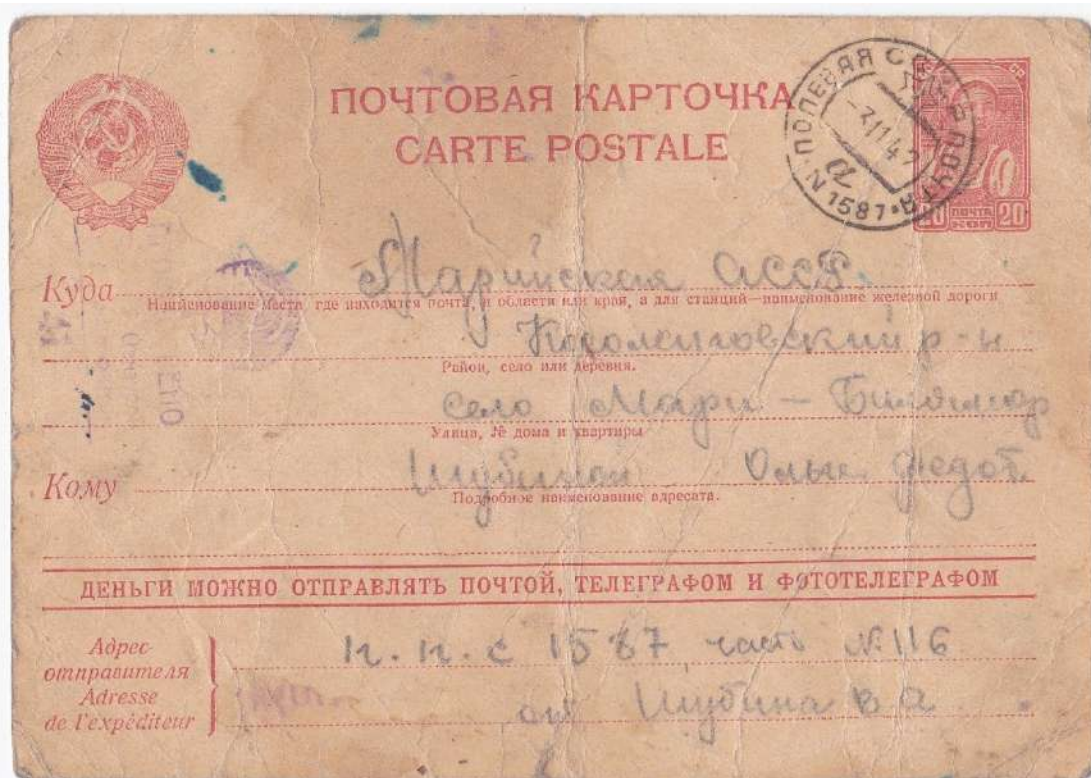 ПОЧТОВАЯ КАРТОЧКА
CARTE POSTALE
ПОЛЕВАЯ ПОЧТА
N 1587
а
20 ПОЧТА КОП 20
Куда Марийская АССР
Наименование места, где находится почта, и области или края, а для станций—наименование железной дороги
р-н
Район, село или деревня.
село Мари - Билямор
Улица, № дома и квартиры
Кому Шубиной Ольге Федот.
Подробное наименование адресата.
ДЕНЬГИ МОЖНО ОТПРАВЛЯТЬ ПОЧТОЙ, ТЕЛЕГРАФОМ И ФОТОТЕЛЕГРАФОМ
Адрес отправителя
Adresse de l'expéditeur
п. п. с 1587 часть № 116
от Шубина В А